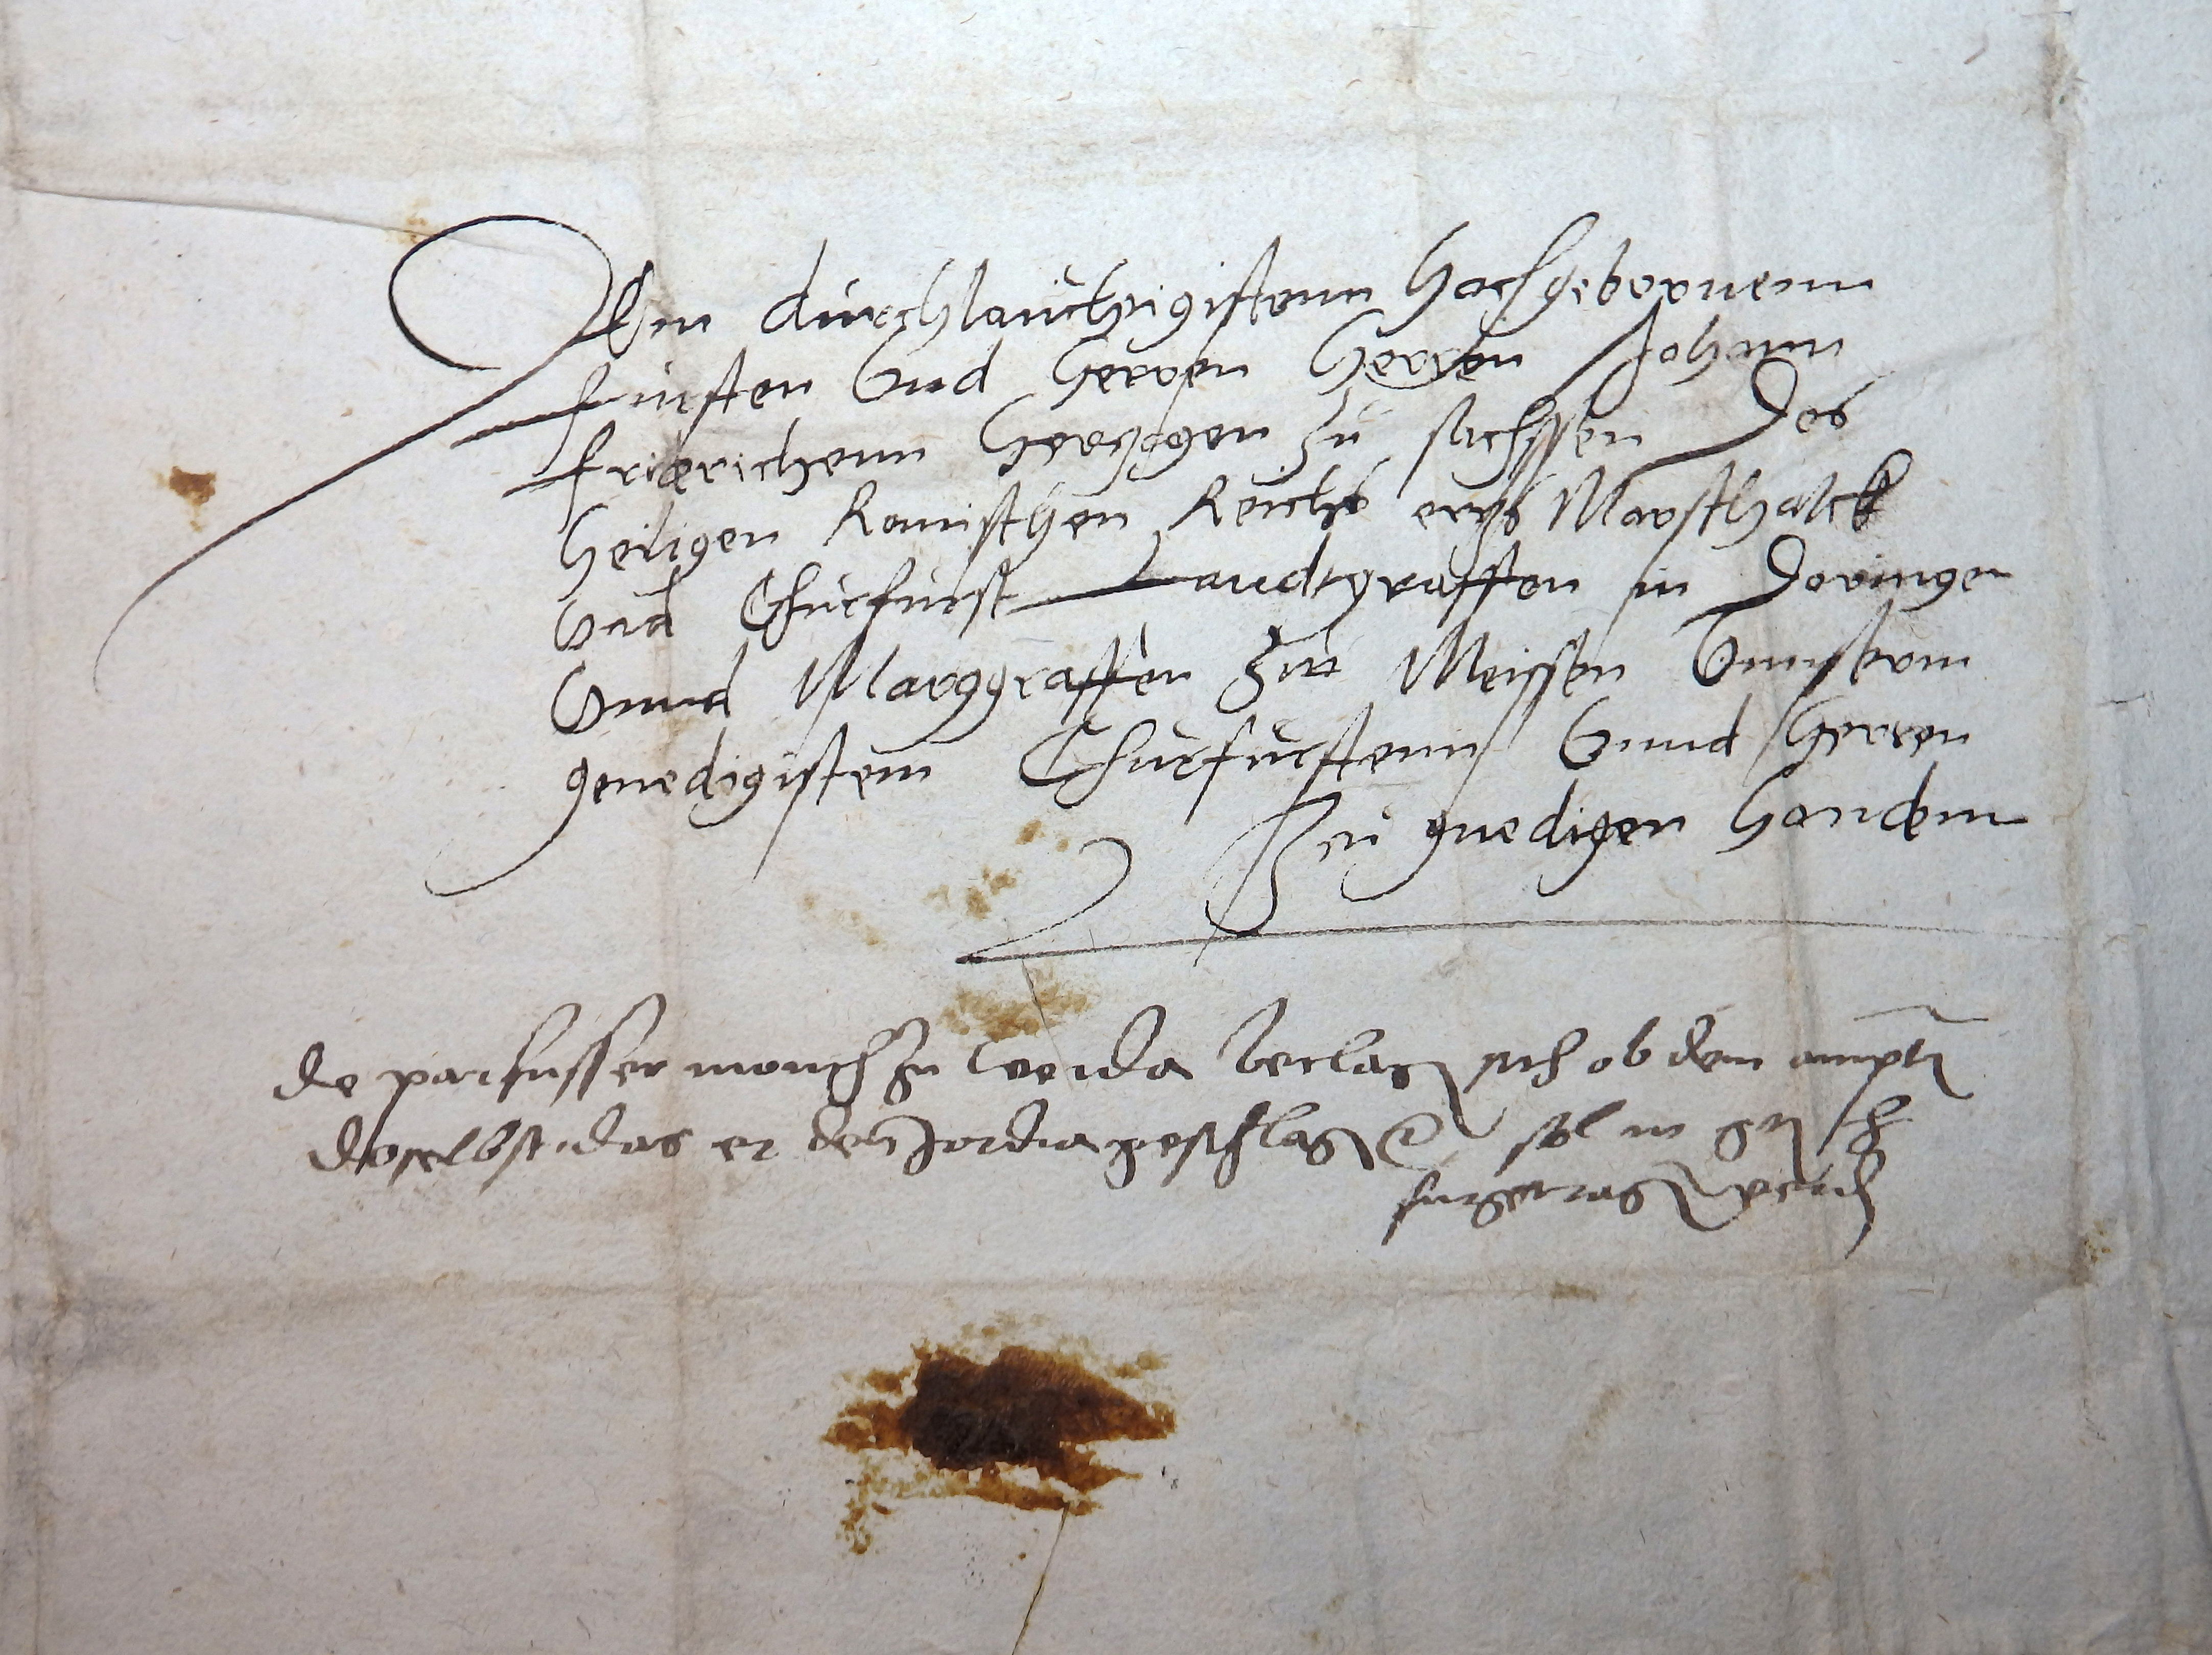 Dem durchlauchtigistenn Hochgebornenn
fursten Vnd Herren Herren Johann
friderichenn Hertzogen zu sachssen Des
Heiligen Romischen Reichs ertz Marschalck
Vnd Churfurst Landtgraffen in Doringen
Vnnd Marggraffen zu Meissen Vnnserm
genedigistem Churfurstenn Vnnd Herren
Zu gnedigen Handenn
De parfusser monch zu weida beclag sich ob dem
doselbst das er den